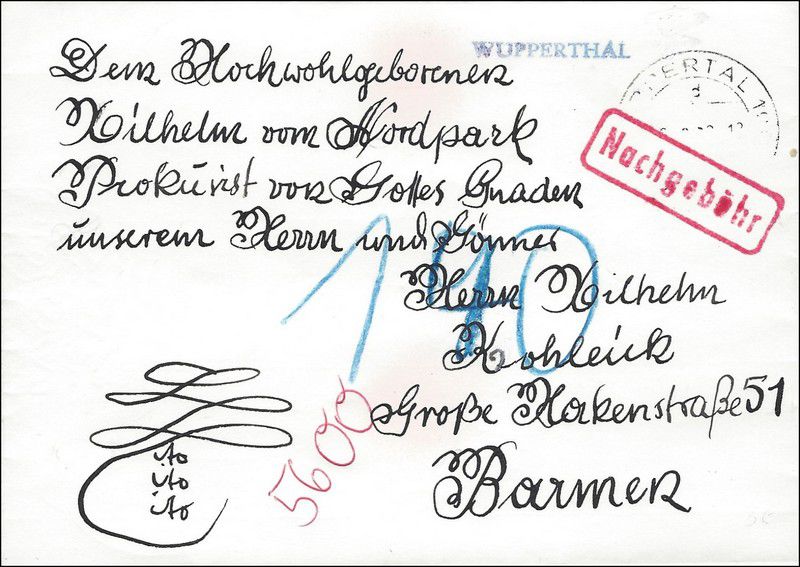 Dem Hochwohlgeborenen
Wilhelm vom Nordpark
Prokurist von Gottes Gnaden
unserem Herrn und Gönner
Herrn Wilhelm
Kohleick
Große Hakenstraße 51
Barmen
WUPPERTHAL
PPERTAL 1
d
Nachgebühr
140
5600
ito
ito
ito